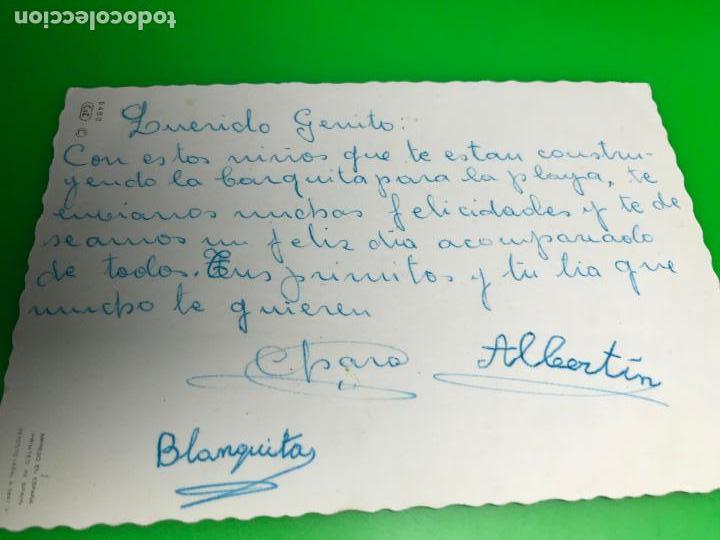 todocoleccion
Querido Genito:
Con estos niños que te estan constru-
yendo la barquita para la playa, te
enviamos muchas felicidades y te de
seamos un feliz dia acompañado
de todos. Tus primitos y tu tia que
mucho te quieren
Charo Albertín
Blanquita
IMPRESO EN ESPAÑA
PRINTED IN SPAIN